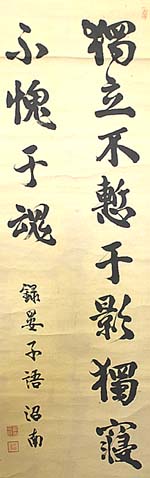 獨立不慙于影獨寢
不愧于魂
錄晏子語 沼南